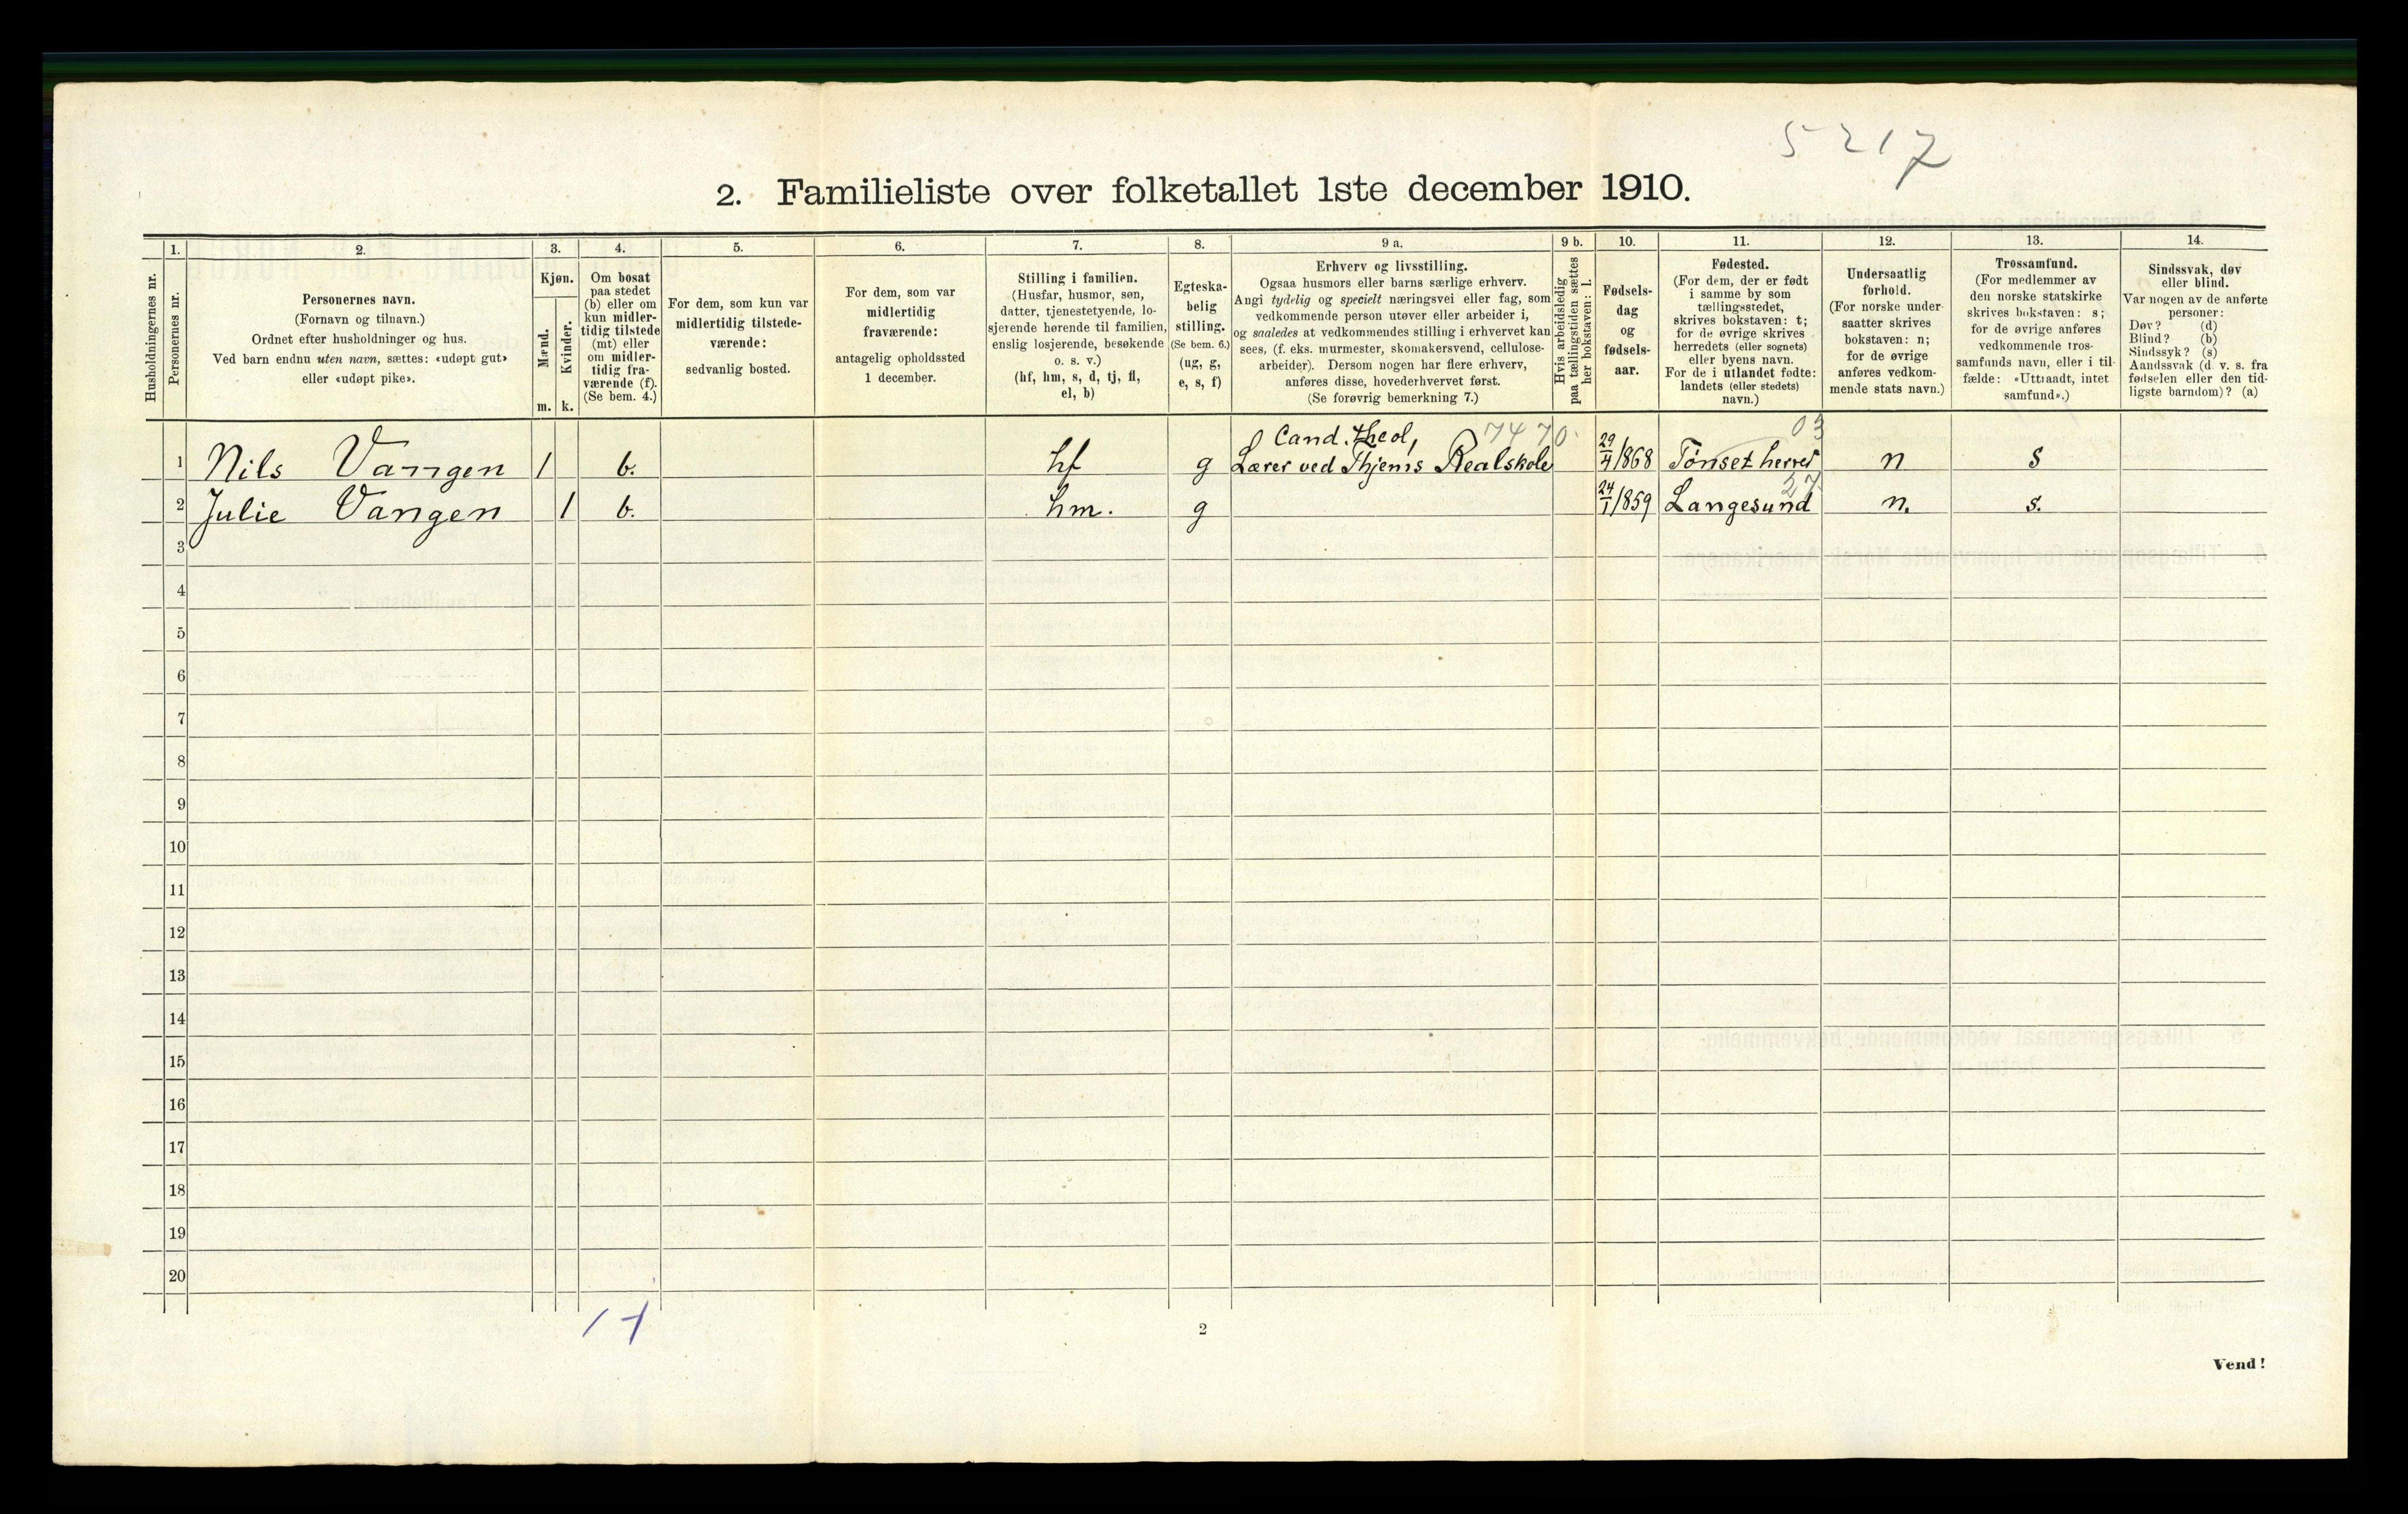 5217
2. Familieliste over folketallet 1ste december 1910.
Husholdningernes nr.
1.
Personernes nr.
2.
Personernes navn.
(Fornavn og tilnavn.)
Ordnet efter husholdninger og hus.
Ved barn endnu uten navn, sættes: «udøpt gut»
eller «udøpt pike».
3.
Kjøn.
Mænd.
Kvinder.
m. k.
4.
Om bosat
paa stedet
(b) eller om
kun midler-
tidig tilstede
(mt) eller
om midler-
tidig fra-
værende (f).
(Se bem. 4.)
5.
For dem, som kun var
midlertidig tilstede-
værende:
sedvanlig bosted.
6.
For dem, som var
midlertidig
fraværende:
antagelig opholdssted
1 december.
7.
Stilling i familien.
(Husfar, husmor, søn,
datter, tjenestetyende, lo-
sjerende hørende til familien,
enslig losjerende, besøkende
o. s. v.)
(hf, hm, s, d, tj, fl,
el, b)
8.
Egteska-
belig
stilling.
(Se bem. 6.)
(ug, g,
e, s, f)
9 a.
Erhverv og livsstilling.
Ogsaa husmors eller barns særlige erhverv.
Angi tydelig og specielt næringsvei eller fag, som
vedkommende person utøver eller arbeider i,
og saaledes at vedkommendes stilling i erhvervet kan
sees, (f. eks. murmester, skomakersvend, cellulose-
arbeider). Dersom nogen har flere erhverv,
anføres disse, hovederhvervet først.
(Se forøvrig bemerkning 7.)
9 b.
Hvis arbeidsledig
paa tællingstiden sættes
her bokstaven: l.
10.
Fødsels-
dag
og
fødsels-
aar.
11.
Fødested.
(For dem, der er født
i samme by som
tællingsstedet,
skrives bokstaven: t;
for de øvrige skrives
herredets (eller sognets)
eller byens navn.
For de i utlandet fødte:
landets (eller stedets)
navn.)
12.
Undersaatlig
forhold.
(For norske under-
saatter skrives
bokstaven: n;
for de øvrige
anføres vedkom-
mende stats navn.)
13.
Trossamfund.
(For medlemmer av
den norske statskirke
skrives bokstaven: s;
for de øvrige anføres
vedkommende tros-
samfunds navn, eller i til-
fælde: «Uttraadt, intet
samfund».)
14.
Sindssvak, døv
eller blind.
Var nogen av de anførte
personer:
Døv? (d)
Blind? (b)
Sindssyk? (s)
Aandssvak (d. v. s. fra
fødselen eller den tid-
ligste barndom)? (a)
Cand. theol, 7470 03
1 Nils Vangen 1 b. hf g Lærer ved Thjems Realskole 29/4 1868 Tønset herred n s
27
2 Julie Vangen 1 b. hm. g 24/1 1859 Langesund n. s.
3
4
5
6
7
8
9
10
11
12
13
14
15
16
17
18
19
20
2
Vend!